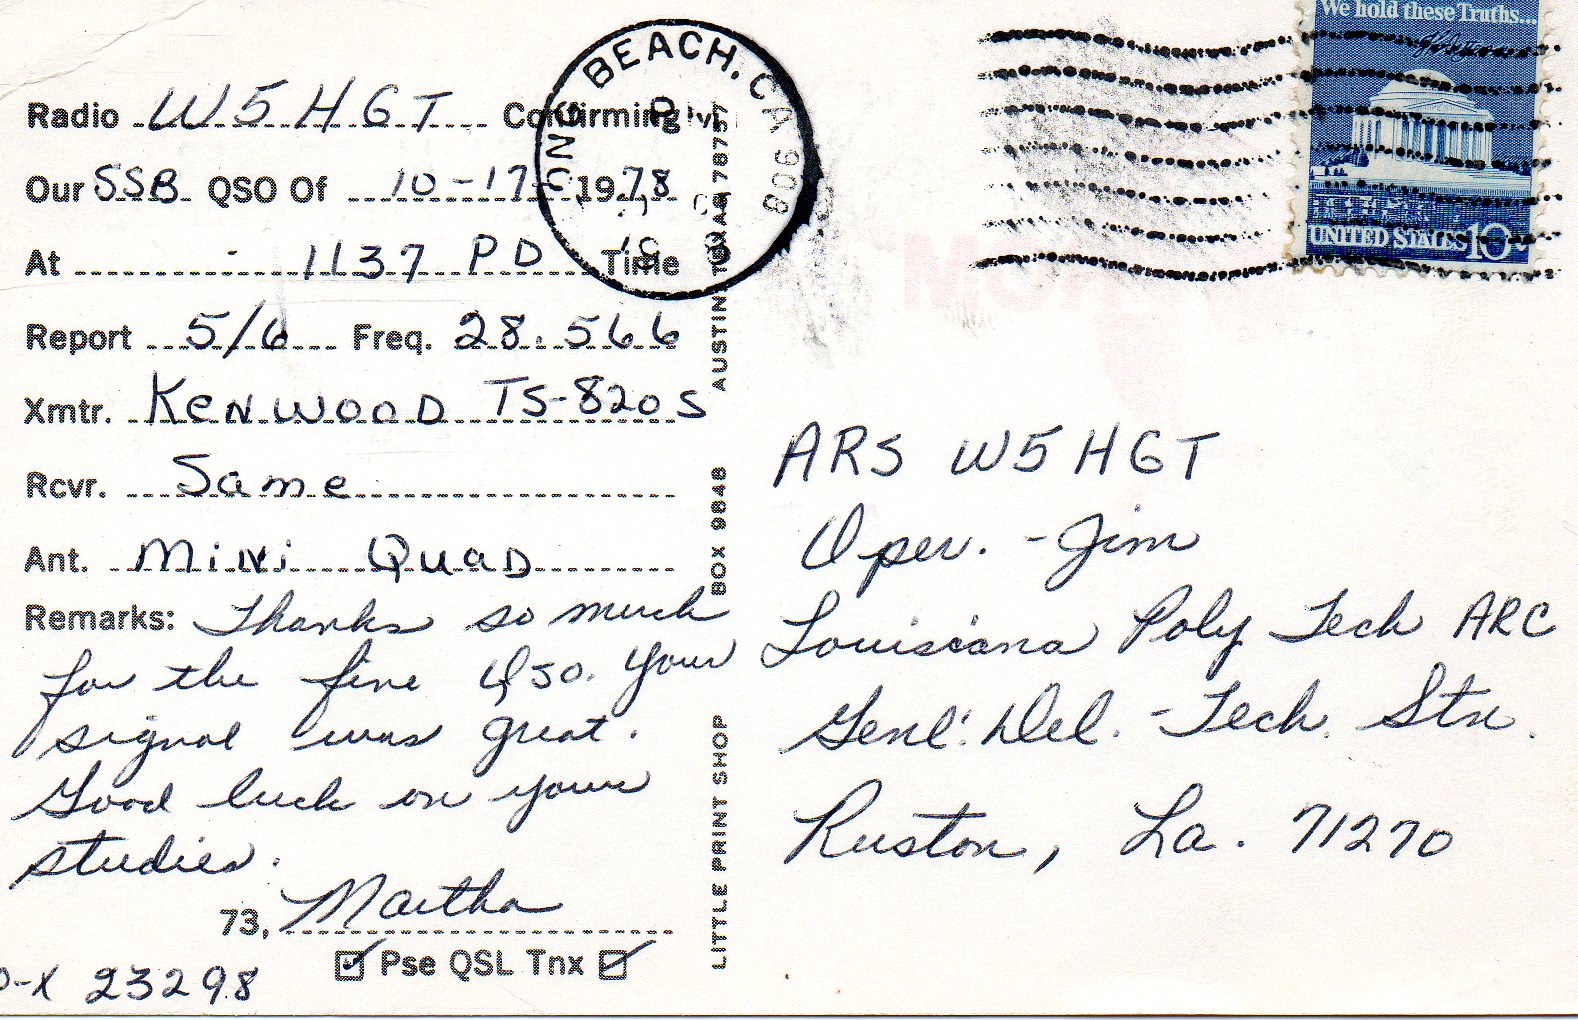 Radio W5HGT Confirming
Our SSB QSO Of 10-17- 1978
At 1137 PD Time
Report 5/6 Freq. 28.566
Xmtr. Kenwood TS-820S
Rcvr. Same
Ant. Mini Quad
Remarks: Thanks so much
for the fine QSO. Your
signal was great.
Good luck on your
studies.
73, Martha
Pse QSL Tnx
-X 23298
LITTLE PRINT SHOP BOX 9848 AUSTIN, TEXAS 78757
LONG BEACH, CA 908
We hold these Truths...
UNITED STATES 10c
ARS W5HGT
Oper. - Jim
Louisiana Poly Tech ARC
Genl. Del. - Tech. Stn.
Ruston, La. 71270